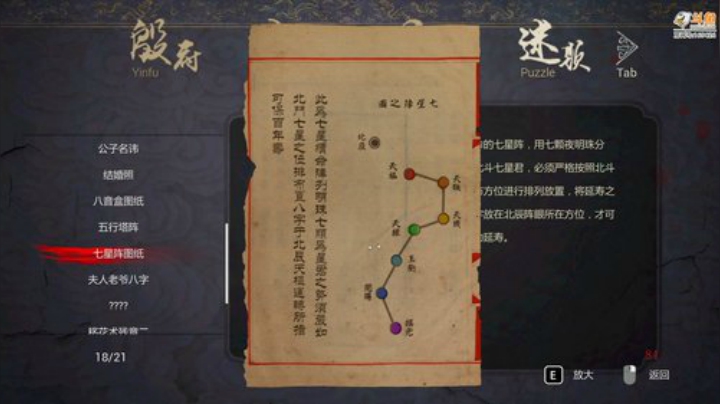 殷府
Yinfu
Puzzle
Tab
公子名讳
结婚照
八音盒图纸
五行塔阵
七星阵图纸
夫人老爷八字
????
18/21
七星陣之圖
北辰
天樞
天璇
天璣
天權
玉衡
開陽
搖光
此為七星續命陣列明珠七顆為星之勢須嚴如
北鬥七星之位排布置八字于北辰天樞運轉所指
可保百年壽
的七星阵，用七颗夜明珠分
北斗七星君，必须严格按照北斗
方位进行排列放置，将延寿之
字放在北辰阵眼所在方位，才可
延寿。
84
E 放大
返回